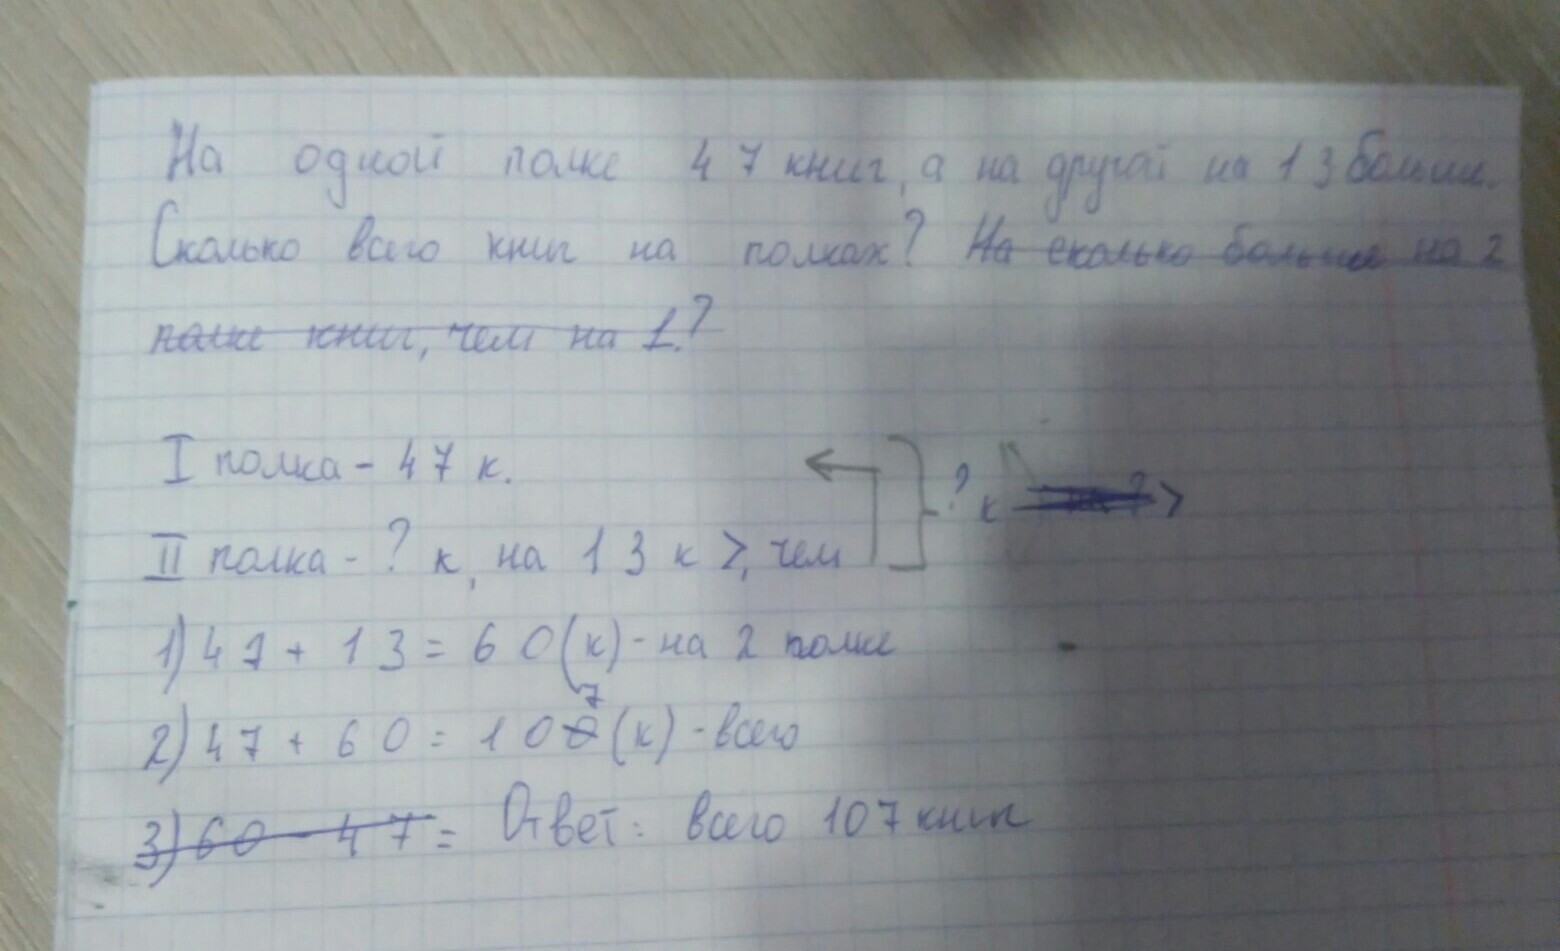 На одной полке 47 книг, а на другой на 13 больше.
Сколько всего книг на полках? На сколько больше на 2
полке книг, чем на 1?
I полка - 47 к.
II полка - ? к, на 13 к >, чем
? к >
1) 47 + 13 = 60 (к) - на 2 полке
2) 47 + 60 = 107 (к) - всего
3) 60 - 47 = Ответ: всего 107 книг